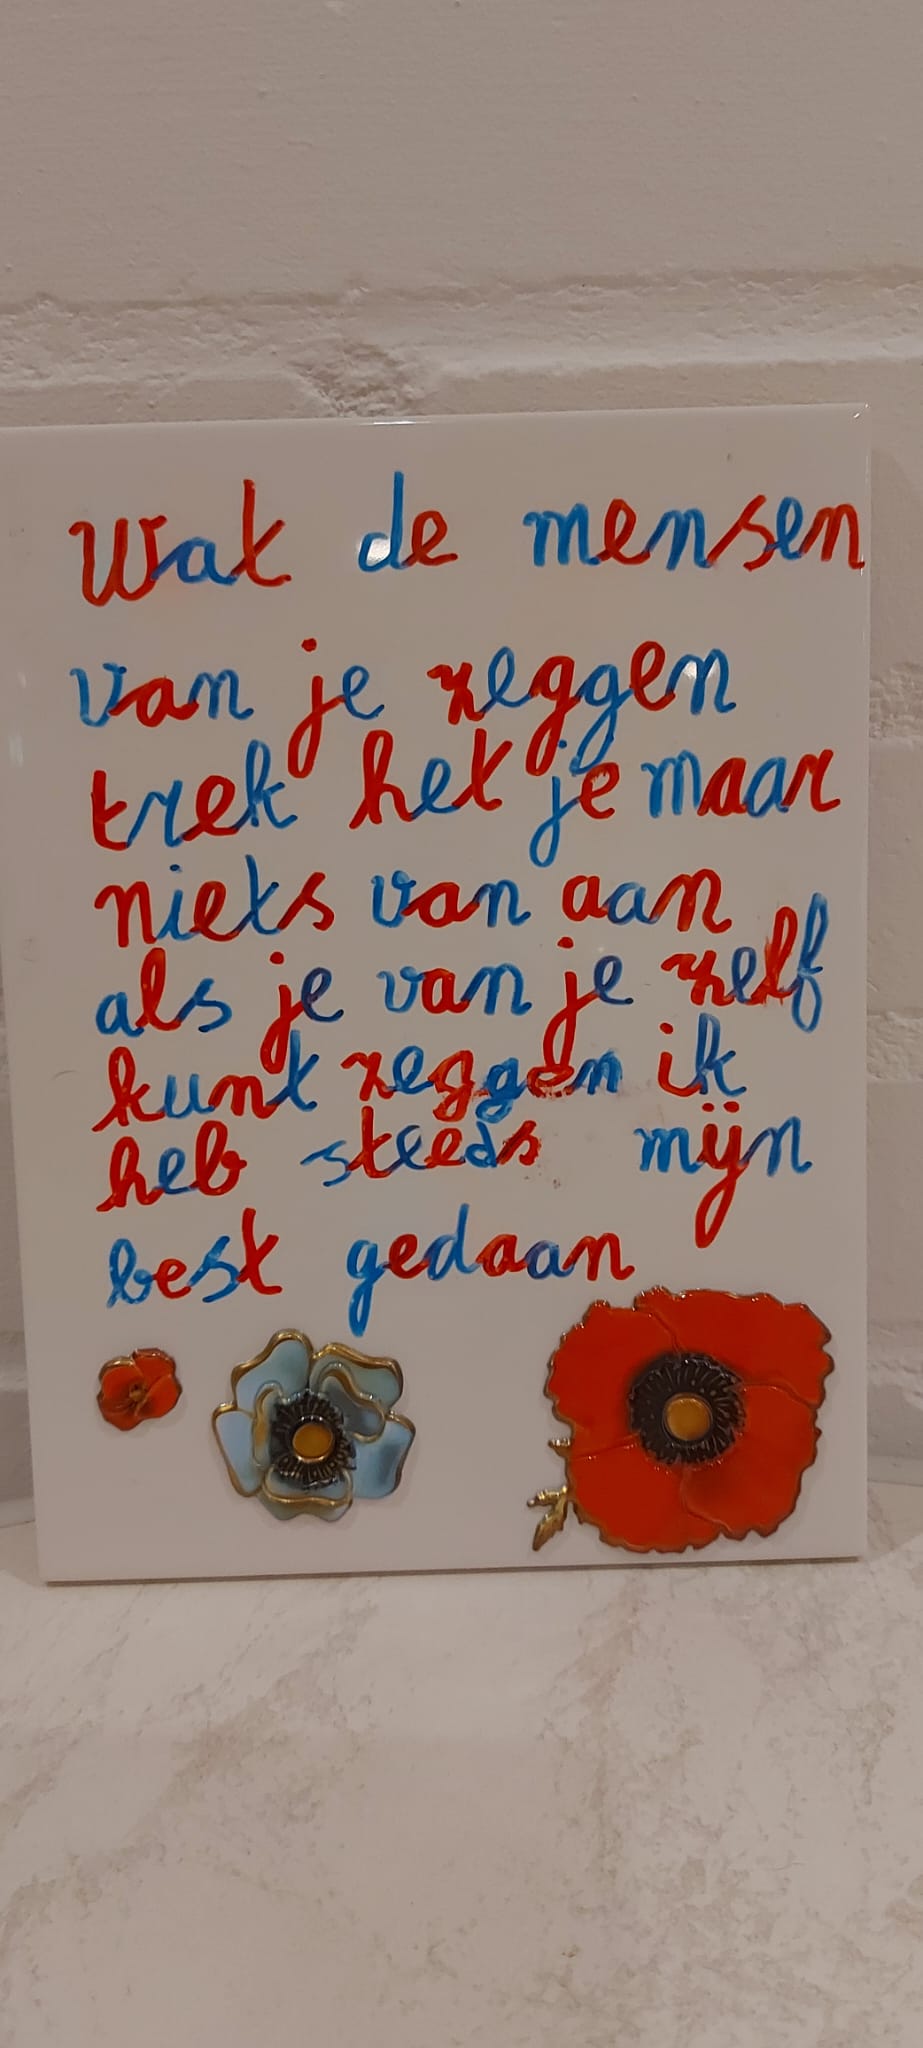 Wat de mensen
van je zeggen
trek het je maar
niets van aan
als je van je zelf
kunt zeggen ik
heb steeds mijn
best gedaan